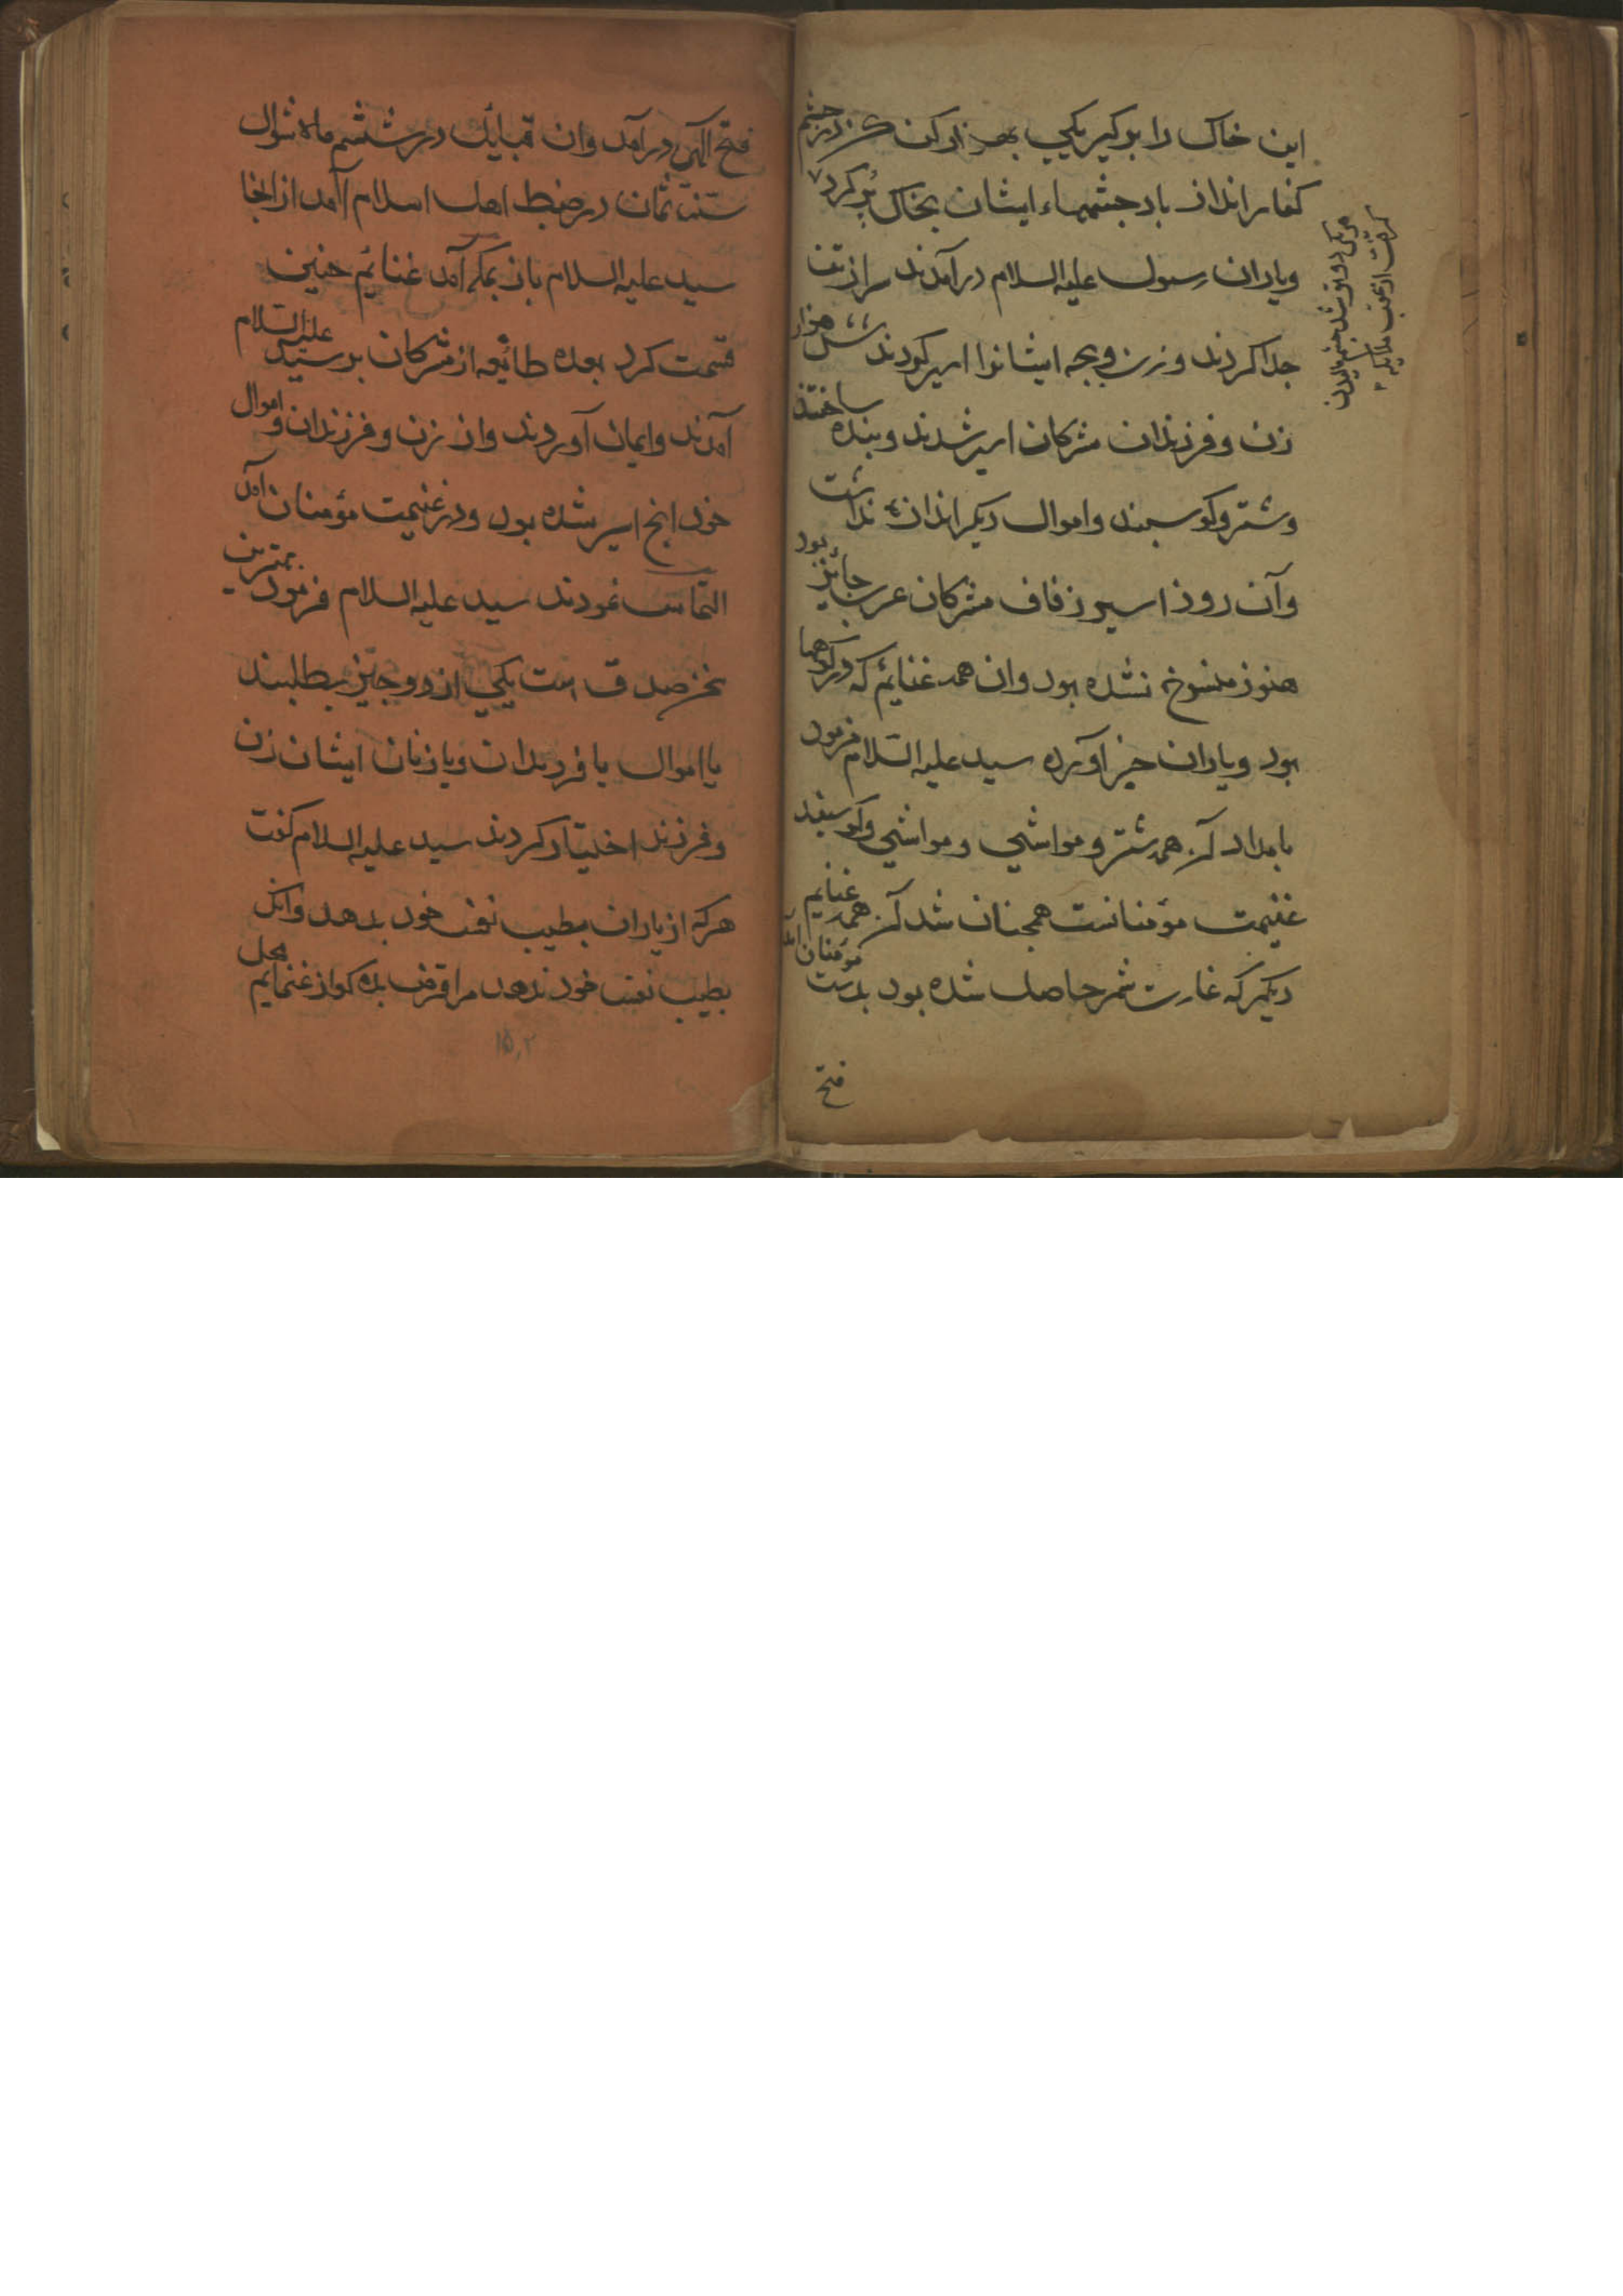 این خاک را برکیر یکی بهر او کن کز در چشم
کفار انداز باد چشمهاء ایشان بخاک پر کرد
ویاران رسول علیه السلام درآمدند سر از تن
جدا کردند وزن وبچه ایشانرا اسیر کردند شش هزار
زن وفرزندان مشرکان اسیر شدند وبنده ساختند
وشتر وکوسبند واموال دیکر اندازه نداشت
وآن روز اسیر زفاف مشرکان عرب جائز بود
هنوز منسوخ نشده بود وان همه غنائم که در کوهها
بود ویاران خبر آورده سید علیه السلام فرمود
بامداد آن همه شتر ومواشی وکوسفند
غنیمت مؤمنانست همچنان شد آن همه غنایم
دیکر که غارت حاصل شده بود بدست مؤمنان آمد
فتح
فتح الهی درآمد وان قبایل در ششم ماه شوال
سنه ثمان در ضبط اهل اسلام آمد از انجا
سید علیه السلام باز بمکه آمد غنائم حنین
قسمت کرد بعده طائفه از مشرکان بر سید علیه السلام
آمدند وایمان آوردند وان زن وفرزندان واموال
خود انچ اسیر شده بود ودر غنیمت مؤمنان آمد
التماس نمودند سید علیه السلام فرمود بهترین
سخن صدق است یکی از دو چیز بطلبند
یا اموال یا فرزندان ویا زنان ایشان زن
وفرزند اختیار کردند سید علیه السلام کفت
هرکه از یاران بطیب نفس خود بدهد وانک
بطیب نفس خود ندهد مرا قرض بده کو از غنمایم محل
۱۵۲